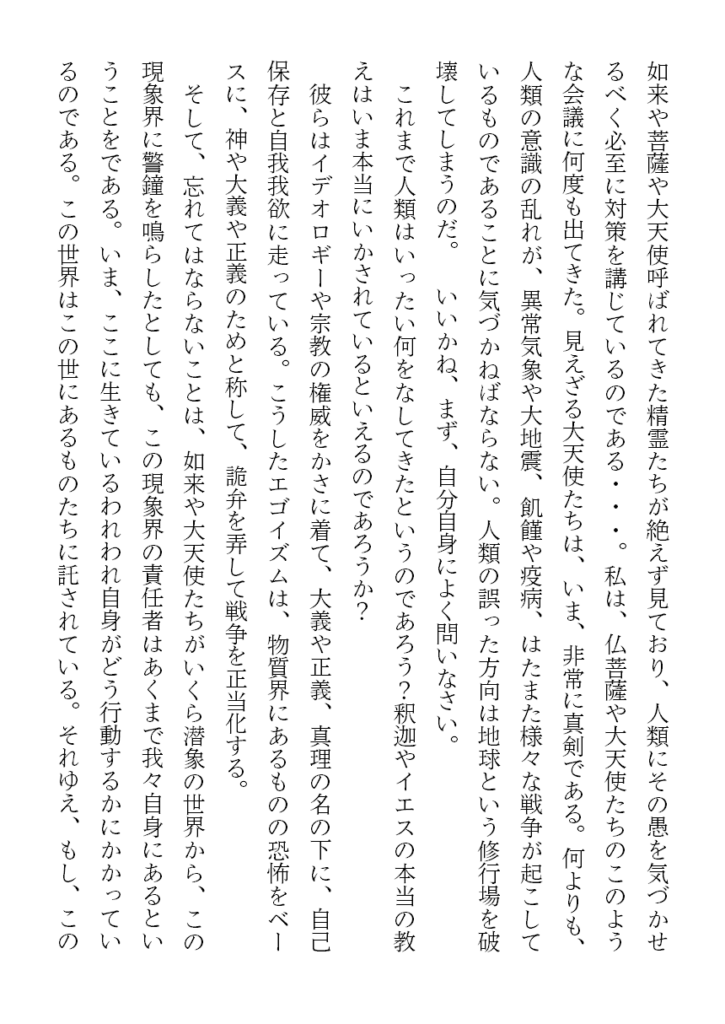 如来や菩薩や大天使呼ばれてきた精霊たちが絶えず見ており、人類にその愚を気づかせ
るべく必至に対策を講じているのである・・・。私は、仏菩薩や大天使たちのこのよう
な会議に何度も出てきた。見えざる大天使たちは、いま、非常に真剣である。何よりも、
人類の意識の乱れが、異常気象や大地震、飢饉や疫病、はたまた様々な戦争が起こして
いるものであることに気づかねばならない。人類の誤った方向は地球という修行場を破
壊してしまうのだ。　いいかね、まず、自分自身によく問いなさい。
　これまで人類はいったい何をなしてきたというのであろう？釈迦やイエスの本当の教
えはいま本当にいかされているといえるのであろうか？
　彼らはイデオロギーや宗教の権威をかさに着て、大義や正義、真理の名の下に、自己
保存と自我我欲に走っている。こうしたエゴイズムは、物質界にあるものの恐怖をベー
スに、神や大義や正義のためと称して、詭弁を弄して戦争を正当化する。
　そして、忘れてはならないことは、如来や大天使たちがいくら潜象の世界から、この
現象界に警鐘を鳴らしたとしても、この現象界の責任者はあくまで我々自身にあるとい
うことをである。いま、ここに生きているわれわれ自身がどう行動するかにかかってい
るのである。この世界はこの世にあるものたちに託されている。それゆえ、もし、この